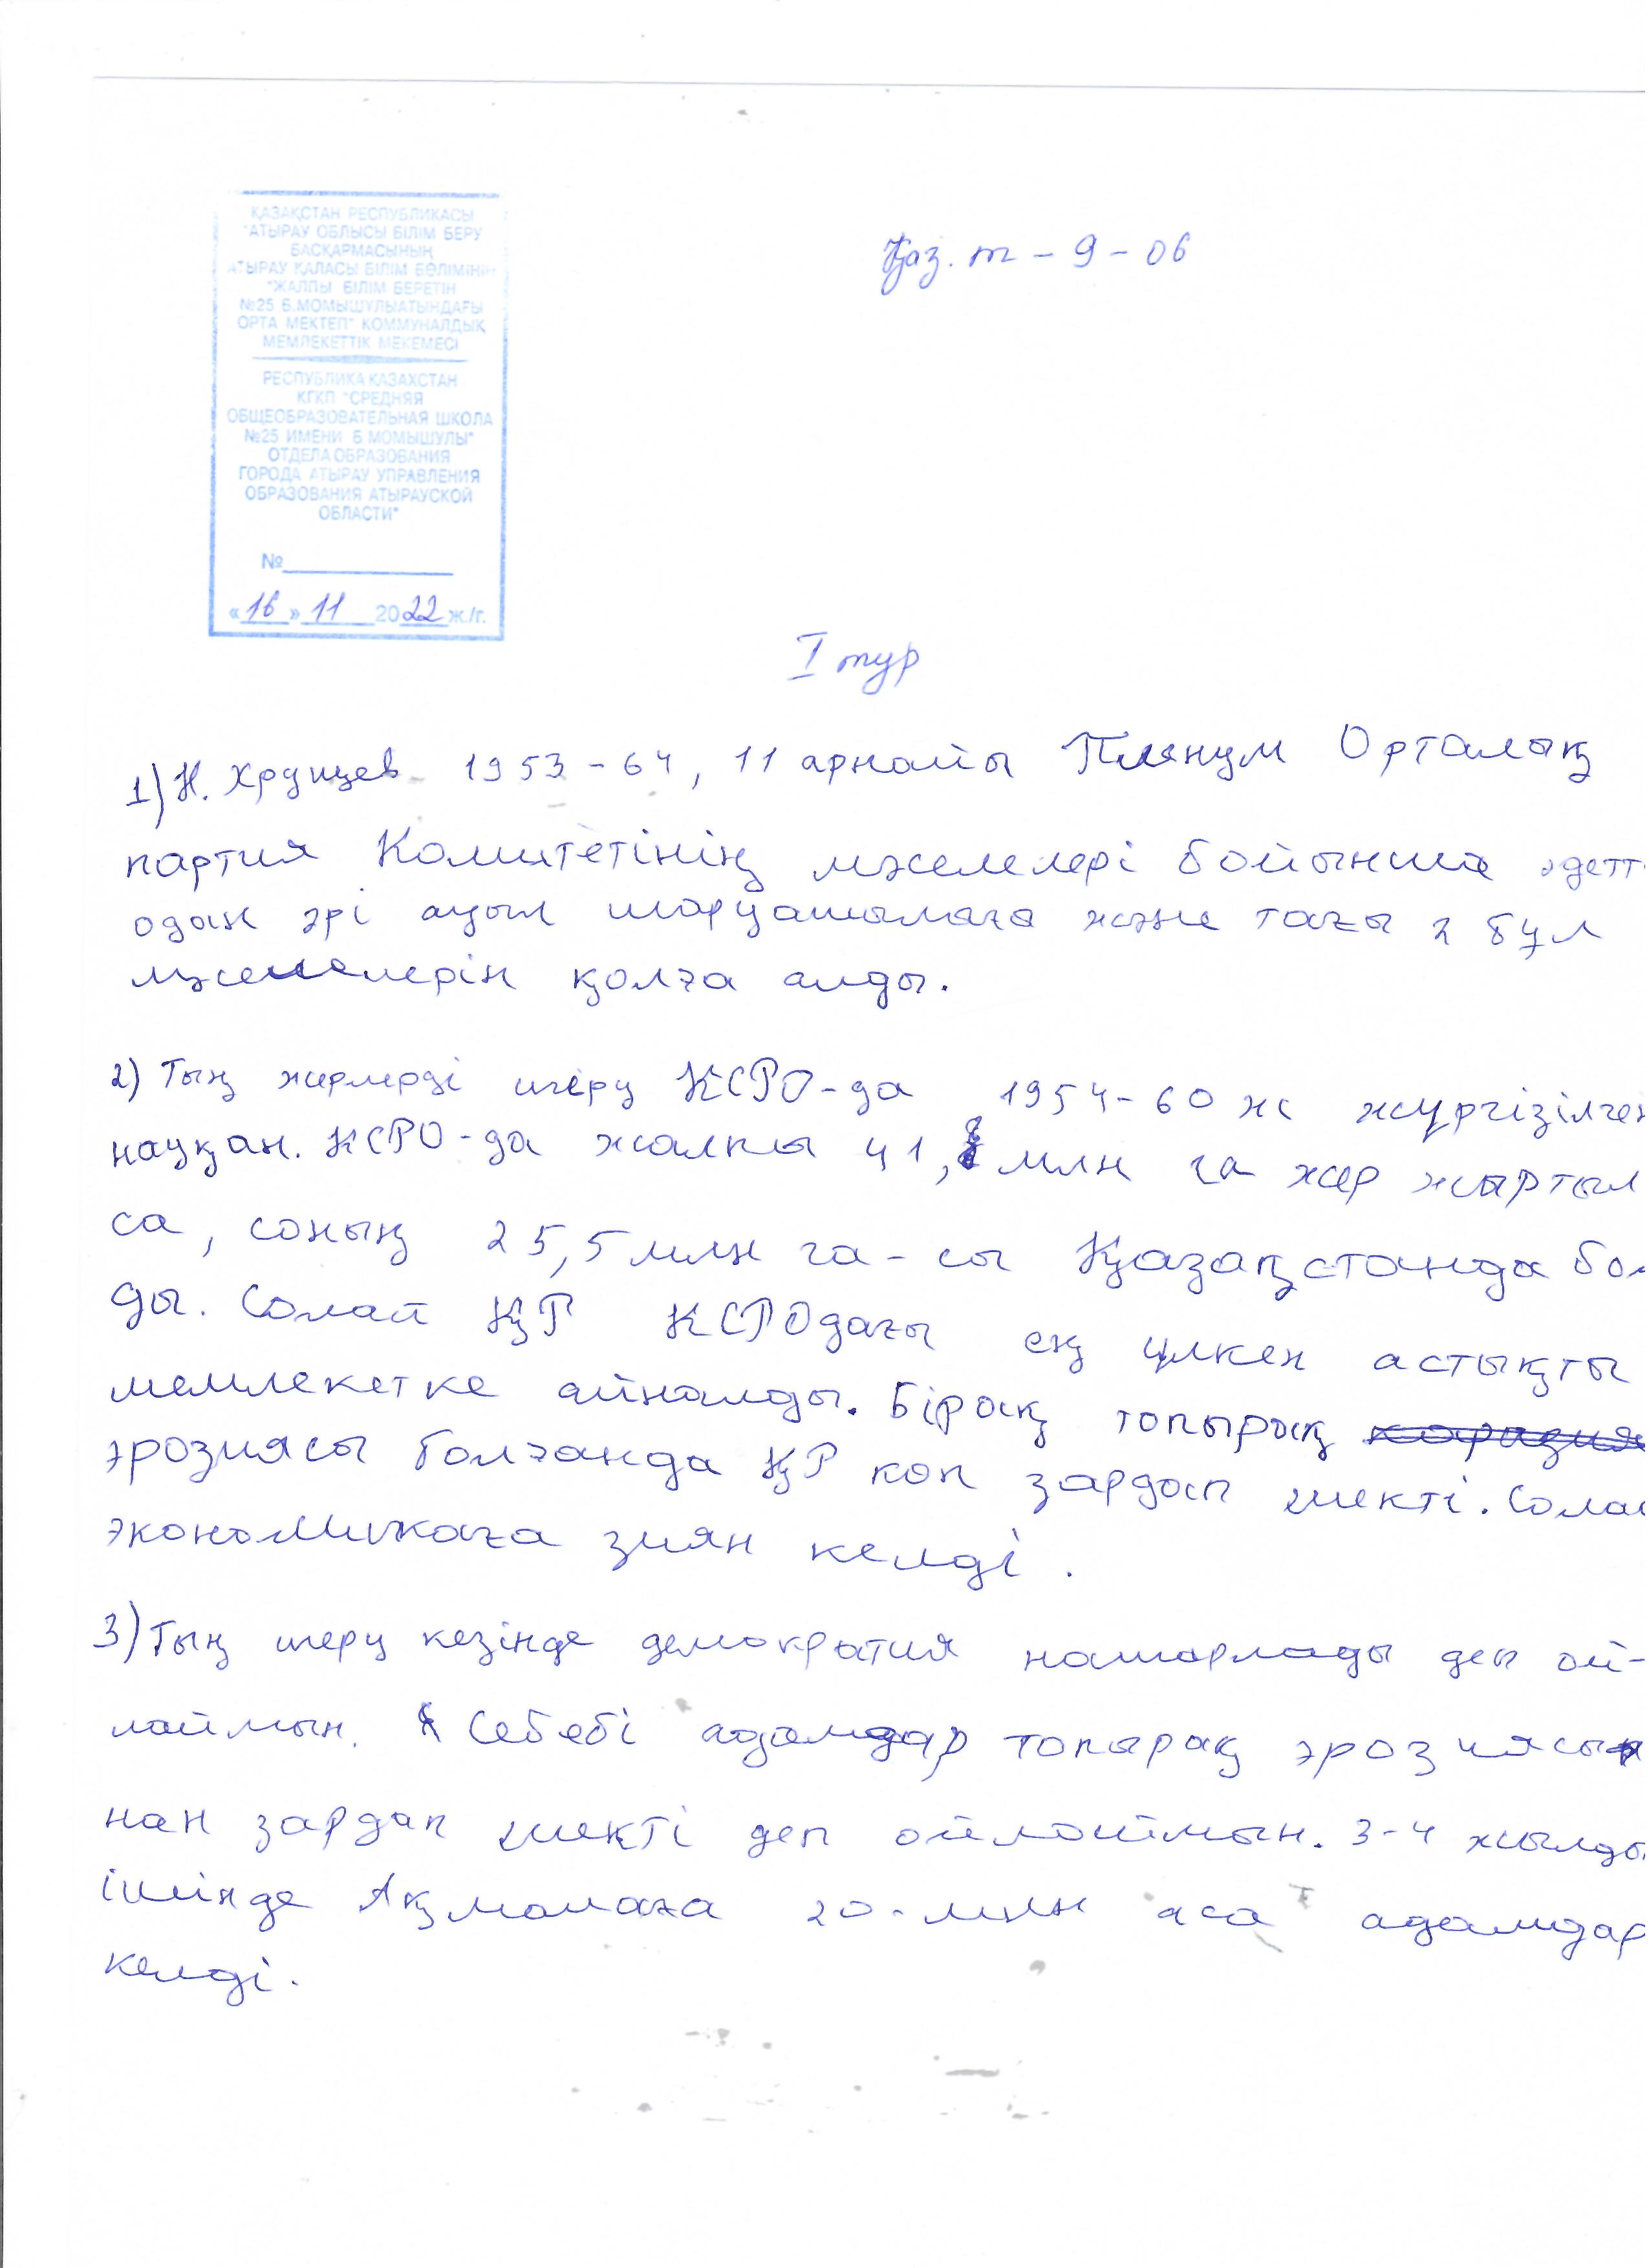 ҚАЗАҚСТАН РЕСПУБЛИКАСЫ
"АТЫРАУ ОБЛЫСЫ БІЛІМ БЕРУ
БАСҚАРМАСЫНЫҢ
АТЫРАУ ҚАЛАСЫ БІЛІМ БӨЛІМІНІҢ
"ЖАЛПЫ БІЛІМ БЕРЕТІН
№25 Б.МОМЫШҰЛЫ АТЫНДАҒЫ
ОРТА МЕКТЕП" КОММУНАЛДЫҚ
МЕМЛЕКЕТТІК МЕКЕМЕСІ
РЕСПУБЛИКА КАЗАХСТАН
КГКП "СРЕДНЯЯ
ОБЩЕОБРАЗОВАТЕЛЬНАЯ ШКОЛА
№25 ИМЕНИ Б.МОМЫШУЛЫ"
ОТДЕЛА ОБРАЗОВАНИЯ
ГОРОДА АТЫРАУ УПРАВЛЕНИЯ
ОБРАЗОВАНИЯ АТЫРАУСКОЙ
ОБЛАСТИ"
№
«16» 11 2022 ж./г.
Қаз. т - 9 - 06
I тур
1) Н. Хрущев 1953 - 64, 11 арнайы Пленум Орталық
партия Комитетінің мәселелері бойынша әдетт
одан әрі ауыл шаруашылаға және тағы 2 бұл
мәселелерін қолға алды.
2) Тың жерлерді игеру КСРО-да 1954-60 жж жүргізілген
науқан. КСРО-да жалпы 41, млн га жер жыртыл
са, соның 25,5 млн га-сы Қазақстанда бол
ды. Солай ҚР КСРОдағы ең үлкен астықты
мемлекетке айналды. Бірақ топырақ
эрозиясы болғанда ҚР көп зардап шекті. Солай
экономикаға зиян келді.
3) Тың игеру кезінде демократия нашарлады деп ой-
лаймын. Себебі адамдар топырақ эрозиясы
нан зардап шекті деп ойлаймын. 3-4 жылды
ішінде Ақмолаға 20-млн аса адамдар
келді.